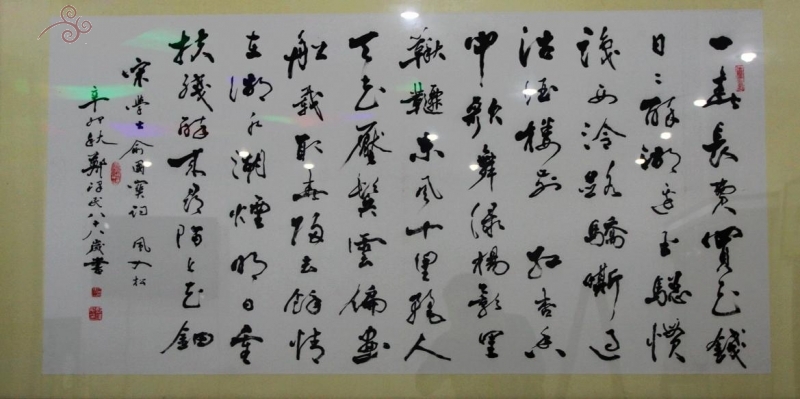 一春長費買花錢
日〻醉湖邊玉驄慣
識西泠路驕嘶過
沽酒樓前紅杏香
中歌舞綠楊影里
鞦韆東風十里麗人
天花壓鬢雲偏畫
船載取春歸去餘情
在湖水湖煙明日重
扶殘醉來尋陌上花鈿
宋學士俞國寶詞 風入松
辛卯秋鄭八十八歲書